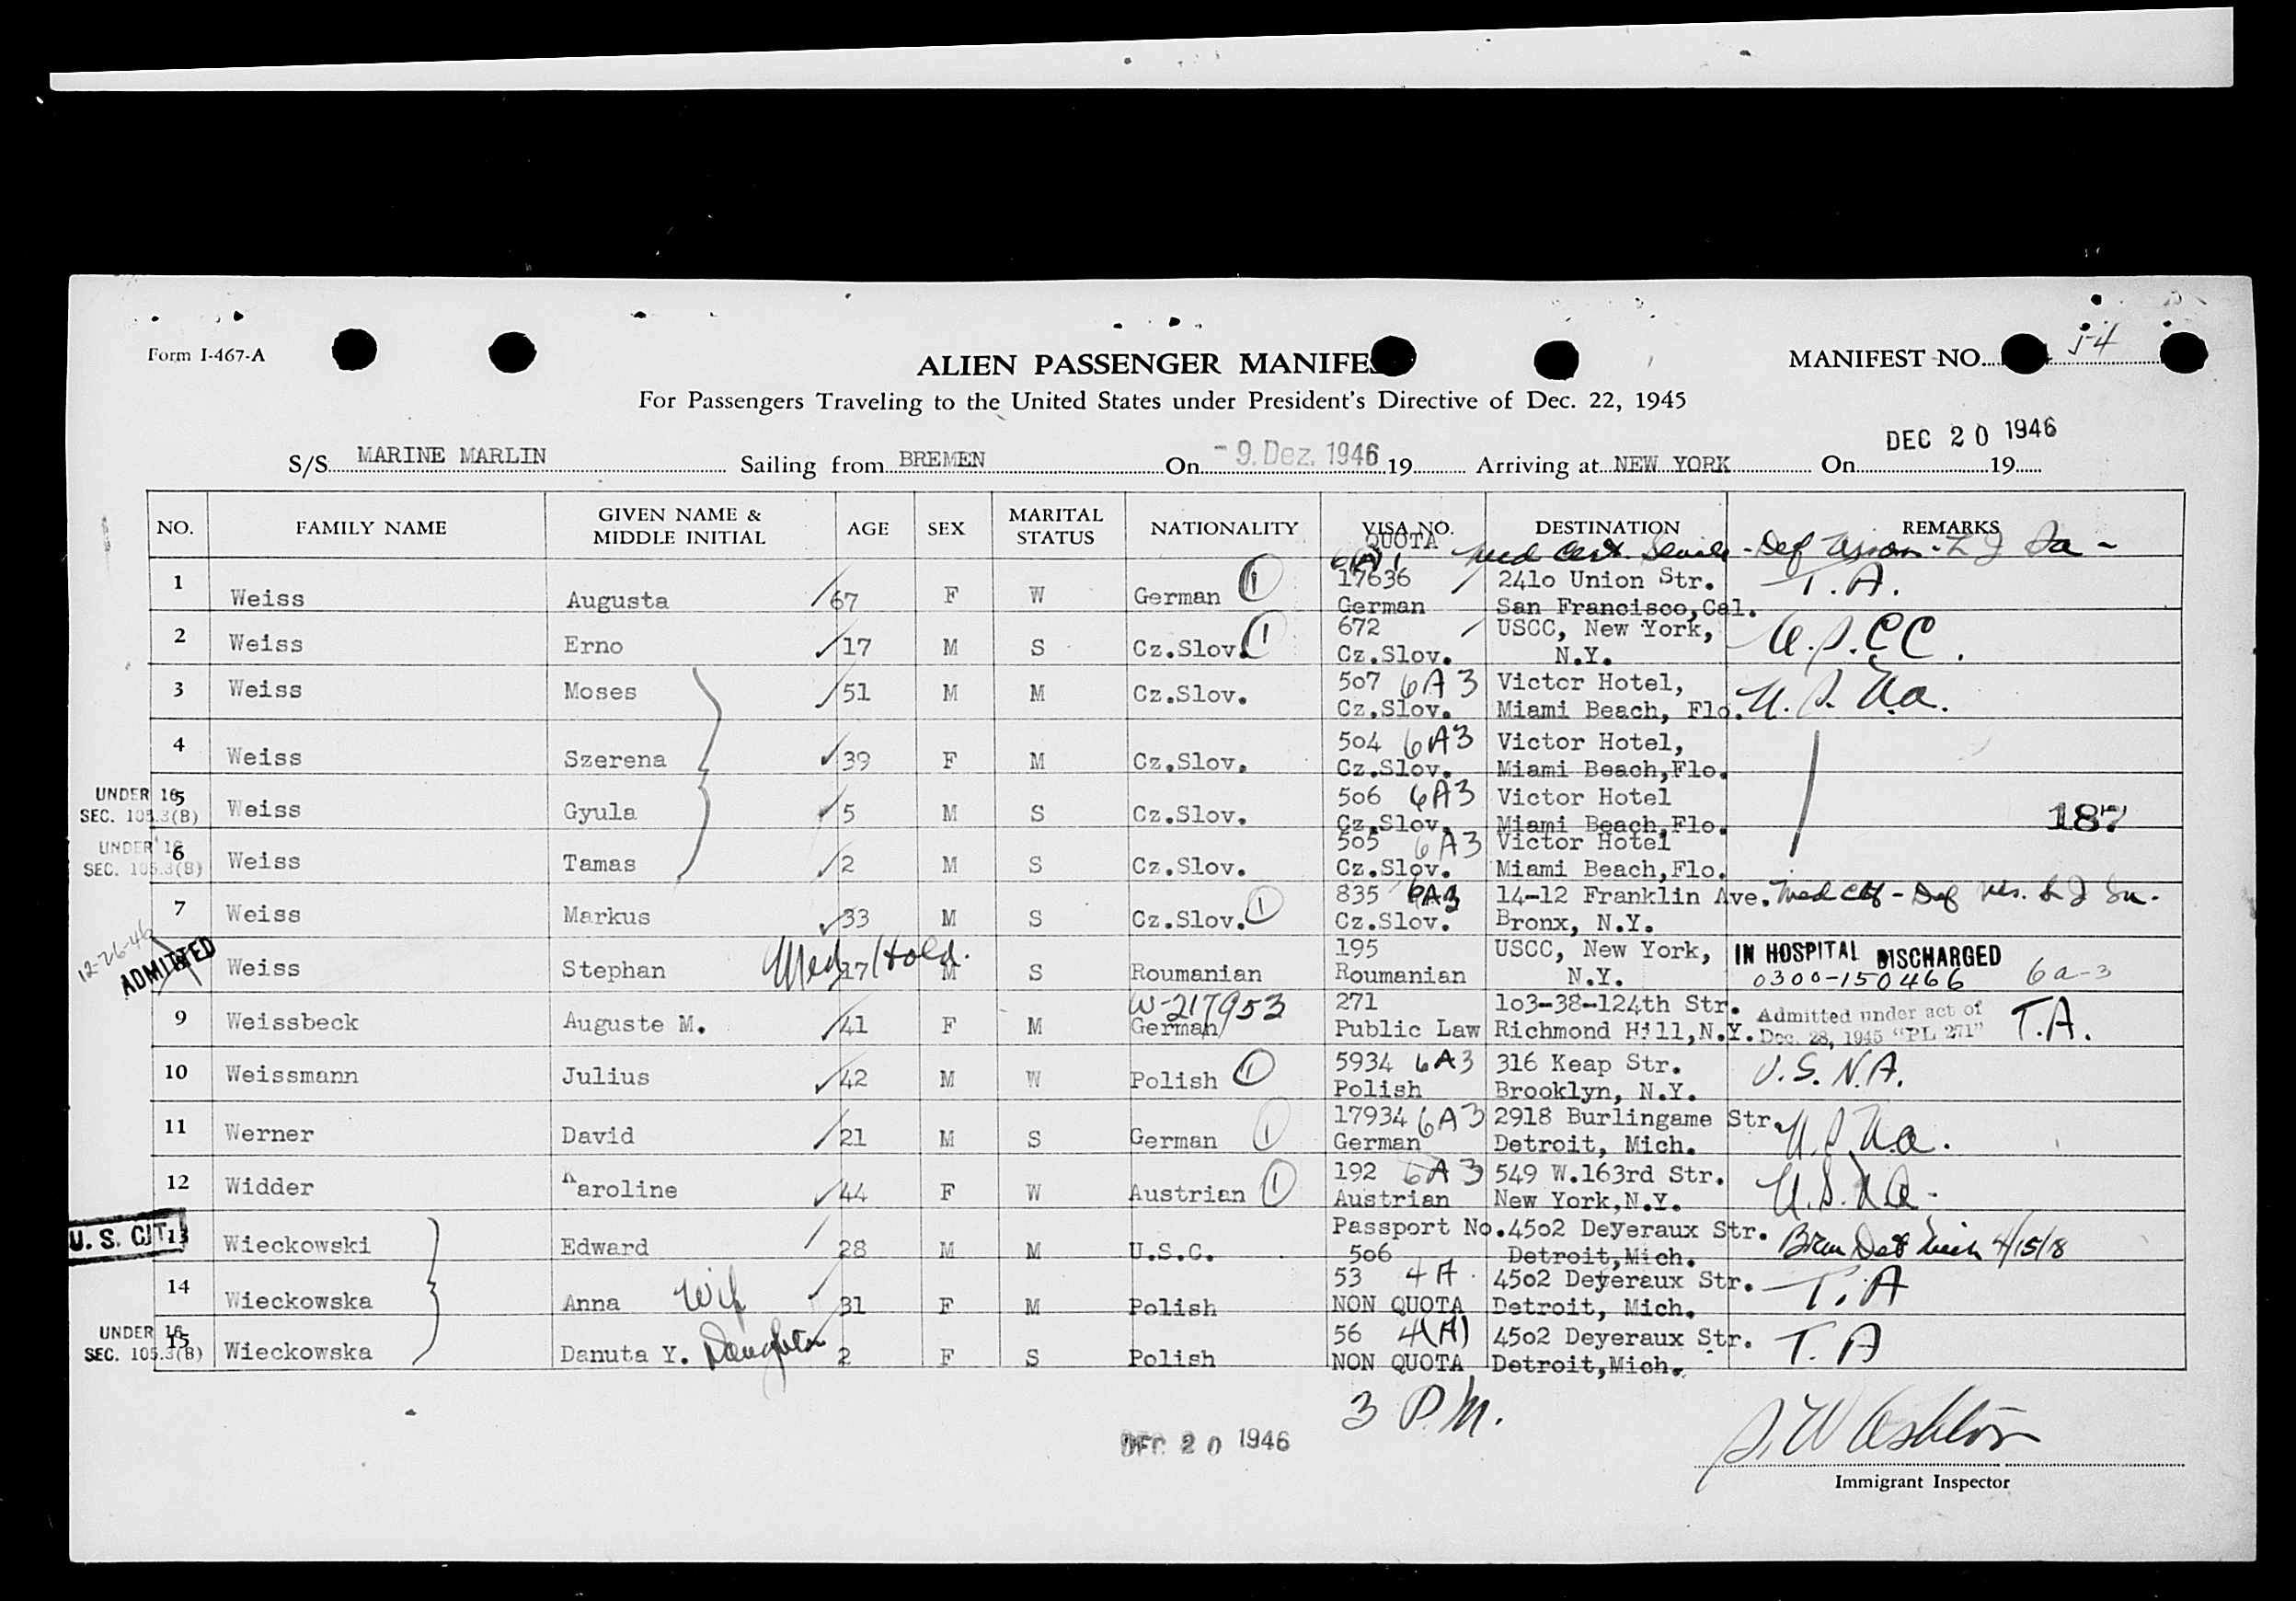 Form I-467-A
ALIEN PASSENGER MANIFES
MANIFEST NO.
For Passengers Traveling to the United States under President's Directive of Dec. 22, 1945
DEC 20 1946
S/S MARINE MARLIN Sailing from BREMEN On - 9. Dez. 1946 19 Arriving at NEW YORK On 19
NO. FAMILY NAME GIVEN NAME & MIDDLE INITIAL AGE SEX MARITAL STATUS NATIONALITY VISA NO. QUOTA DESTINATION REMARKS
Med Cert. Senile - Def
1 Weiss Augusta 67 F W German 1 17636 2410 Union Str. T.A.
German San Francisco, Cal.
2 Weiss Erno 17 M S Cz.Slov. 1 672 USCC, New York, U.S.CC.
Cz.Slov. N.Y.
3 Weiss Moses 51 M M Cz.Slov. 507 6A3 Victor Hotel, U.S.Na.
Cz.Slov. Miami Beach, Flo.
4 Weiss Szerena 39 F M Cz.Slov. 504 6A3 Victor Hotel,
Cz.Slov. Miami Beach,Flo.
UNDER 16
SEC. 105.3(B)
5 Weiss Gyula 5 M S Cz.Slov. 506 6A3 Victor Hotel 187
Cz.Slov. Miami Beach,Flo.
UNDER 16
SEC. 105.3(B)
6 Weiss Tamas 2 M S Cz.Slov. 505 6A3 Victor Hotel
Cz.Slov. Miami Beach,Flo.
7 Weiss Markus 33 M S Cz.Slov. 1 835 6A3 14-12 Franklin Ave. Med Ctf - Def
Cz.Slov. Bronx, N.Y.
12-26-46
ADMITTED
Weiss Stephan Med Hold. 17 M S Roumanian 195 USCC, New York, IN HOSPITAL DISCHARGED
Roumanian N.Y. 0300-150466 6a-3
W-217953
9 Weissbeck Auguste M. 41 F M German 271 103-38-124th Str. Admitted under act of T.A.
Public Law Richmond Hill,N.Y. Dec. 28, 1945 "PL 271"
10 Weissmann Julius 42 M W Polish 1 5934 6A3 316 Keap Str. U.S.N.A.
Polish Brooklyn, N.Y.
11 Werner David 21 M S German 1 17934 6A3 2918 Burlingame Str. U.S.Na.
German Detroit, Mich.
12 Widder Karoline 44 F W Austrian 1 192 6A3 549 W.163rd Str. U.S.Na.
Austrian New York,N.Y.
U. S. CIT.
13 Wieckowski Edward 28 M M U.S.C. Passport No. 4502 Deyeraux Str. Born Det Mich 4/15/18
506 Detroit,Mich.
14 Wieckowska Anna Wif 31 F M Polish 53 4A. 4502 Deyeraux Str. T.A
NON QUOTA Detroit, Mich.
UNDER 16
SEC. 105.3(B)
15 Wieckowska Danuta Y. Daughter 2 F S Polish 56 4(A) 4502 Deyeraux Str. T.A
NON QUOTA Detroit,Mich.
3 P.M.
DEC 20 1946
S.W Ashton
Immigrant Inspector